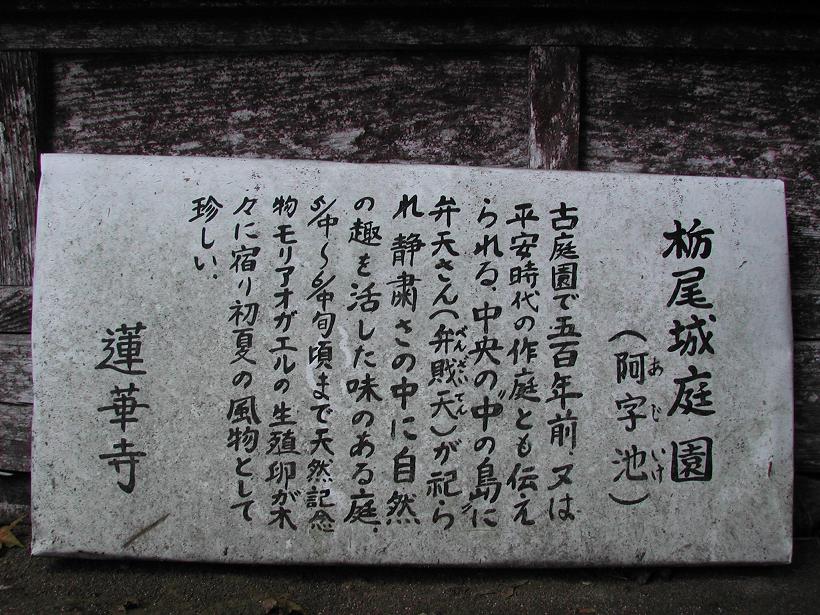 栃尾城庭園
(阿字池)
あじ いけ
古庭園で五百年前、又は
平安時代の作庭とも伝え
られる、中央の〝中の島〟に
弁天さん(弁賎天)が祀ら
べんざいてん
れ 静粛さの中に自然
の趣を活した味のある庭、
5/中〜6/中旬頃まで天然記念
物モリアオガエルの生殖卵が木
々に宿り初夏の風物として
珍しい.
蓮華寺